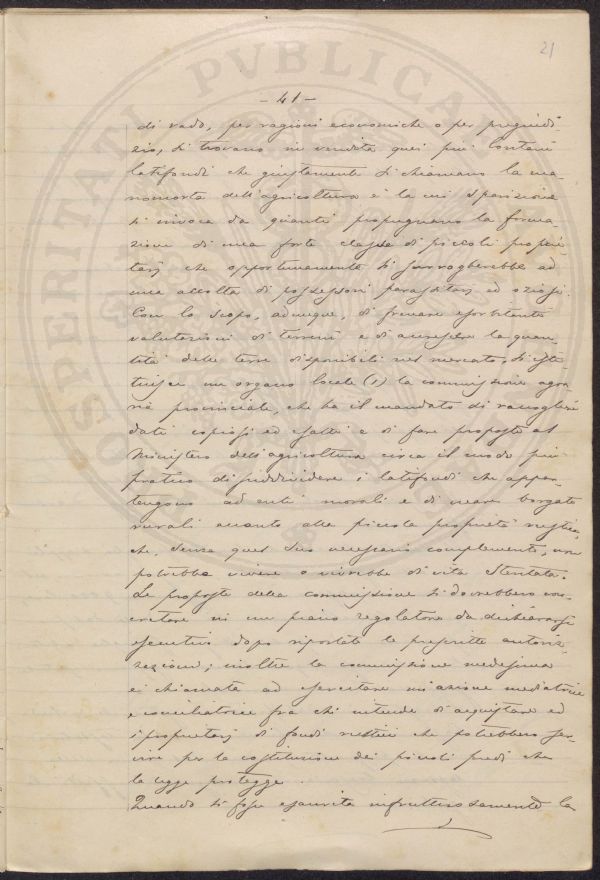 21
- 41 -
di rado, per ragioni economiche o per pregiudi-
zio, si trovano in vendita quei più lontani
latifondi che giustamente si chiamano la ma-
nomorta dell'agricoltura e la cui sparizione
si invoca da quanti propugnano la forma-
zione di una forte classe di piccoli proprie-
tarj che opportunamente si surrogherebbe ad
una accolta di possessori parassitarj ed oziosi.
Con lo scopo, adunque, di frenare esorbitanti
valutazioni di terreni e di accrescere la quan-
tità delle terre disponibili nel mercato, si isti-
tuisce un organo locale (1) la commissione agra-
ria provinciale, che ha il mandato di raccogliere
dati copiosi ed esatti e di fare proposte al
Ministero dell'agricoltura circa il modo più
pratico di suddividere i latifondi che appar-
tengono ad enti morali e di creare borgate
rurali accanto alla piccola proprietà rustica,
che, senza quel suo necessario complemento, non
potrebbe vivere o vivrebbe di vita stentata.
Le proposte della commissione si dovrebbero con-
cretare in un piano regolatore da dichiararsi
esecutivo dopo riportate le prescritte autoriz-
zazioni; inoltre la commissione medesima
è chiamata ad esercitare un'azione mediatrice
e conciliatrice fra chi intende di acquistare ed
i proprietarj di fondi rustici che potrebbero ser-
vire per la costituzione dei piccoli predi che
la legge protegge.
Quando si fosse esaurita infruttuosamente la
PVBLICA
OSPERITATI